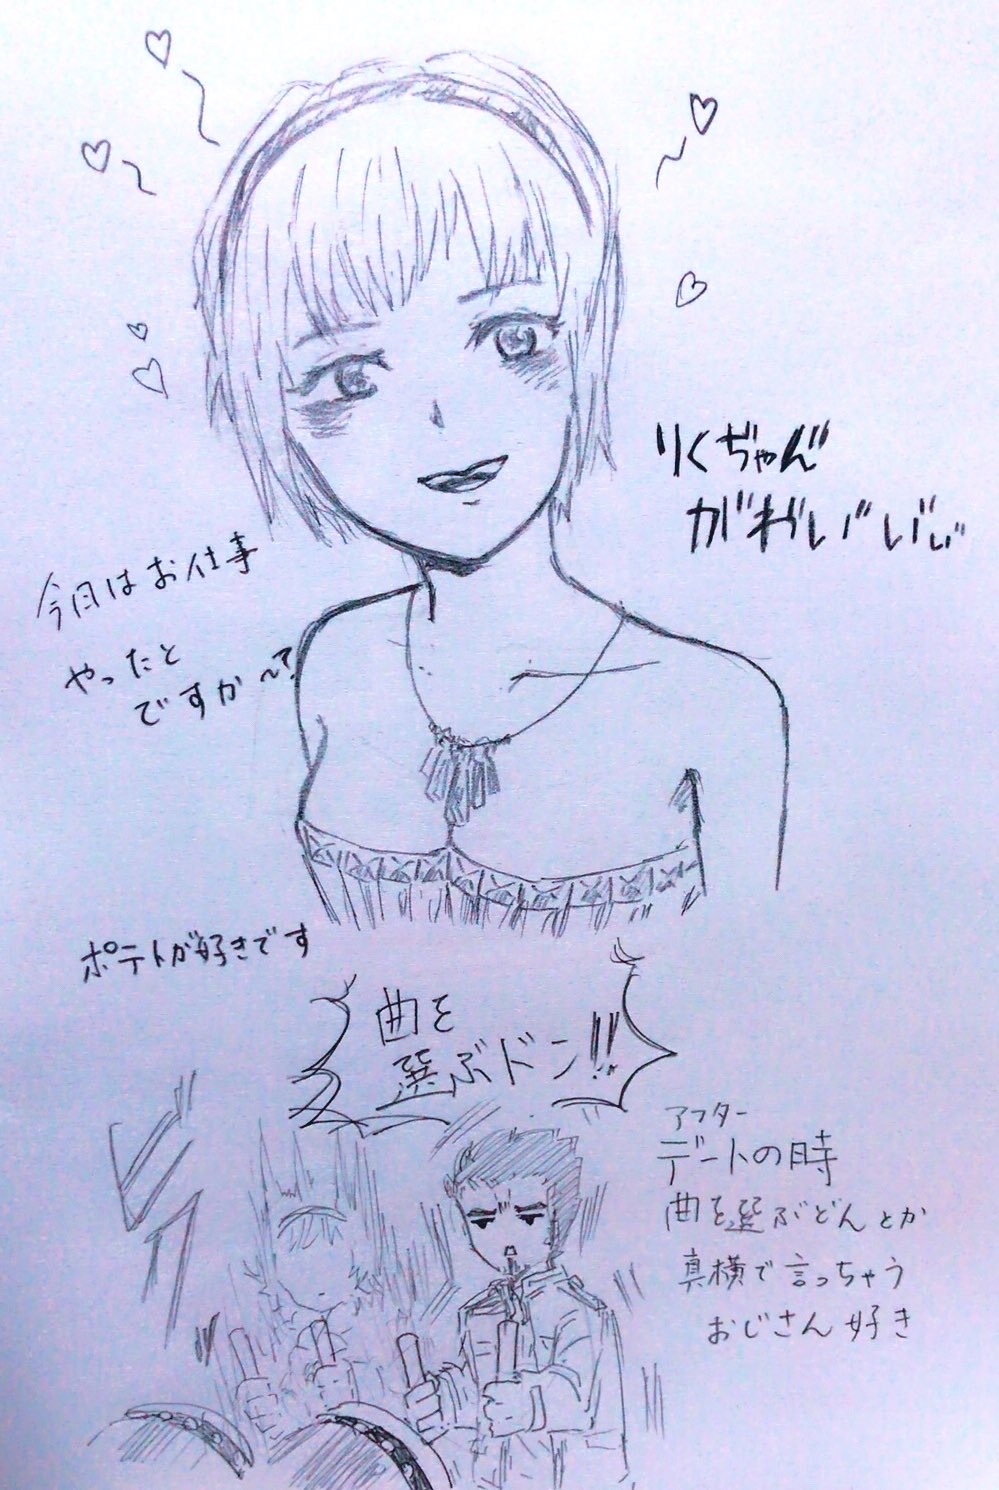 りぐぢゃん゛
がわ゛い゛い゛ぃ゛
今日はお仕事
やったと
ですか〜?
ポテトが好きです
曲を
選ぶドン!!
アフター
デートの時
曲を選ぶどんとか
真横で言っちゃう
おじさん好き